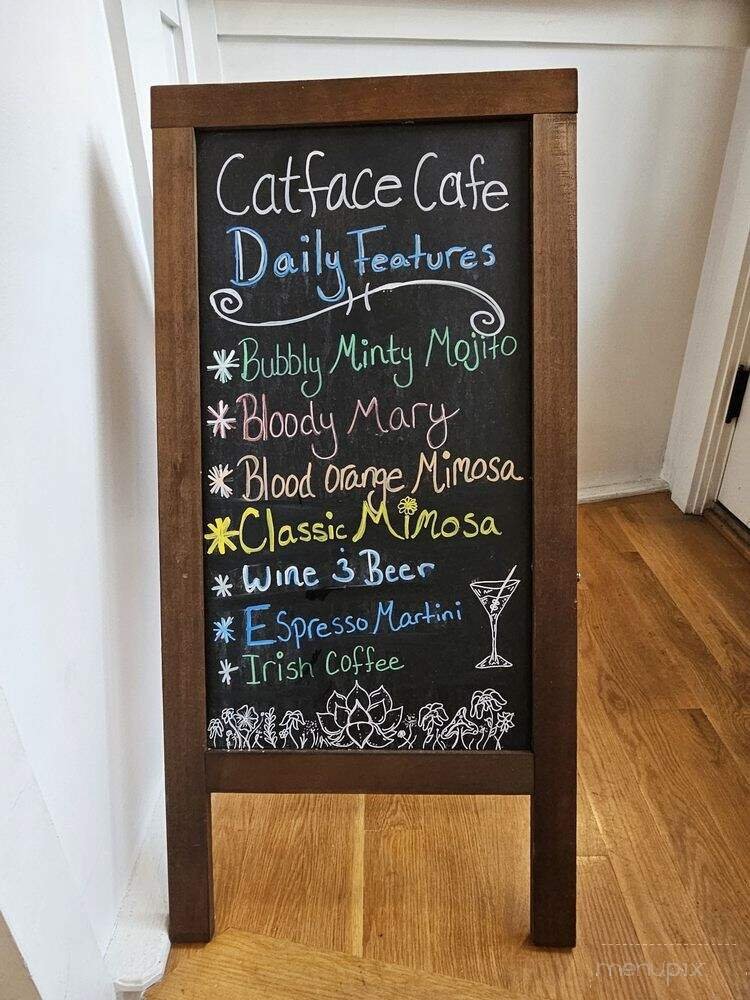 Catface Cafe
Daily Features
Bubbly Minty Mojito
Bloody Mary
Blood Orange Mimosa
Classic Mimosa
Wine & Beer
Espresso Martini
Irish Coffee
menupix